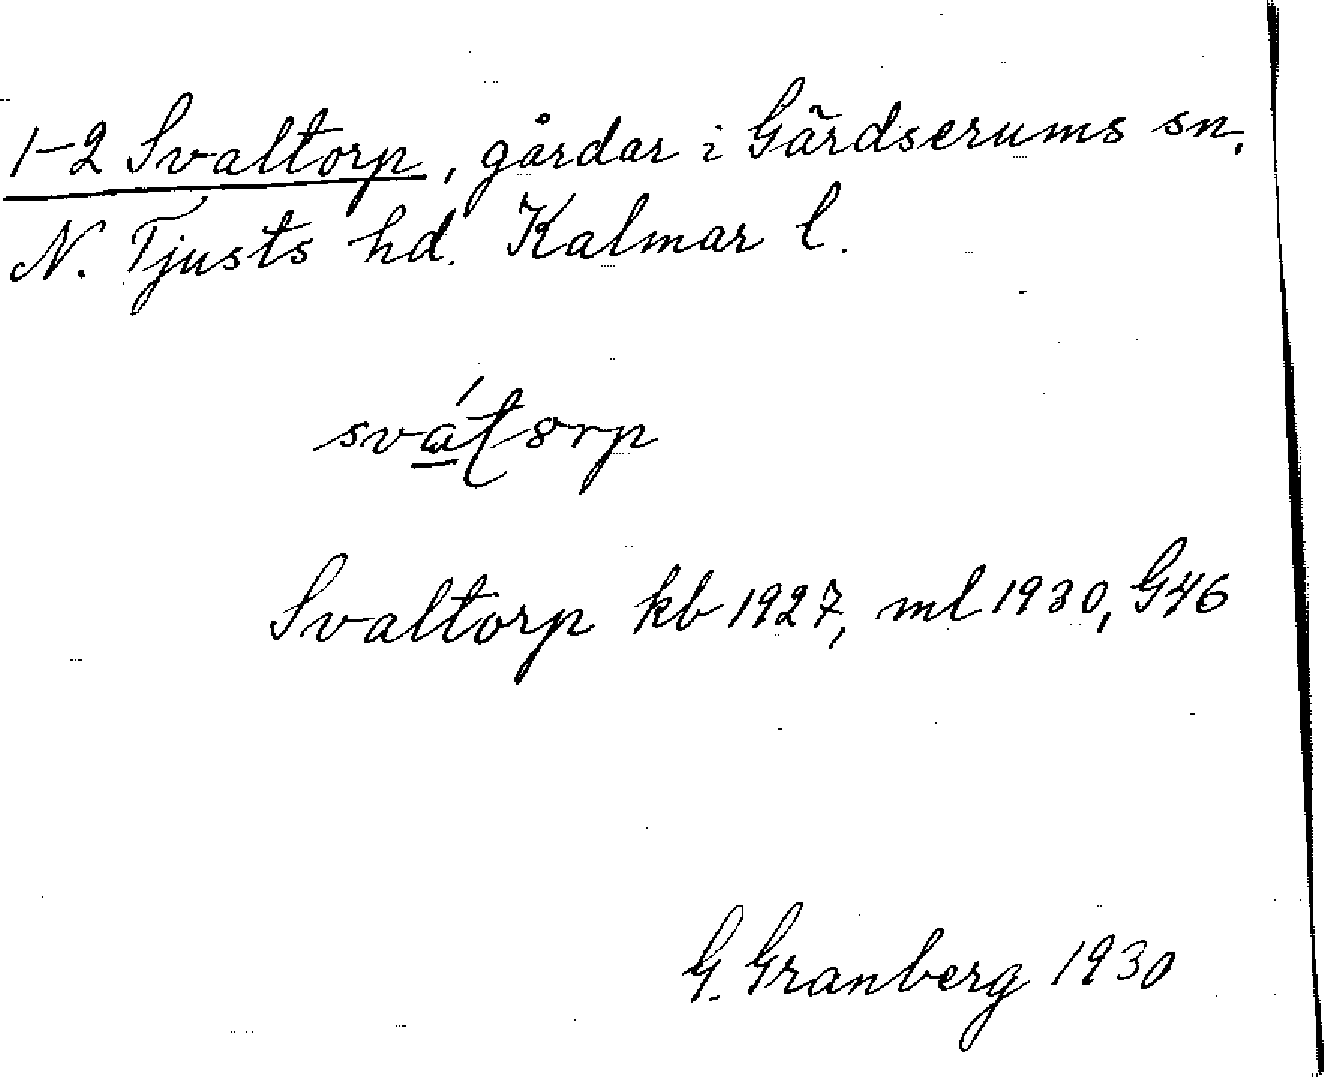 1-2 Svaltorp, gårdar i Gärdserums sn.
N. Tjusts hd. Kalmar l.
Svaltorp kb 1927, ml 1930, G46
G. Granberg 1930